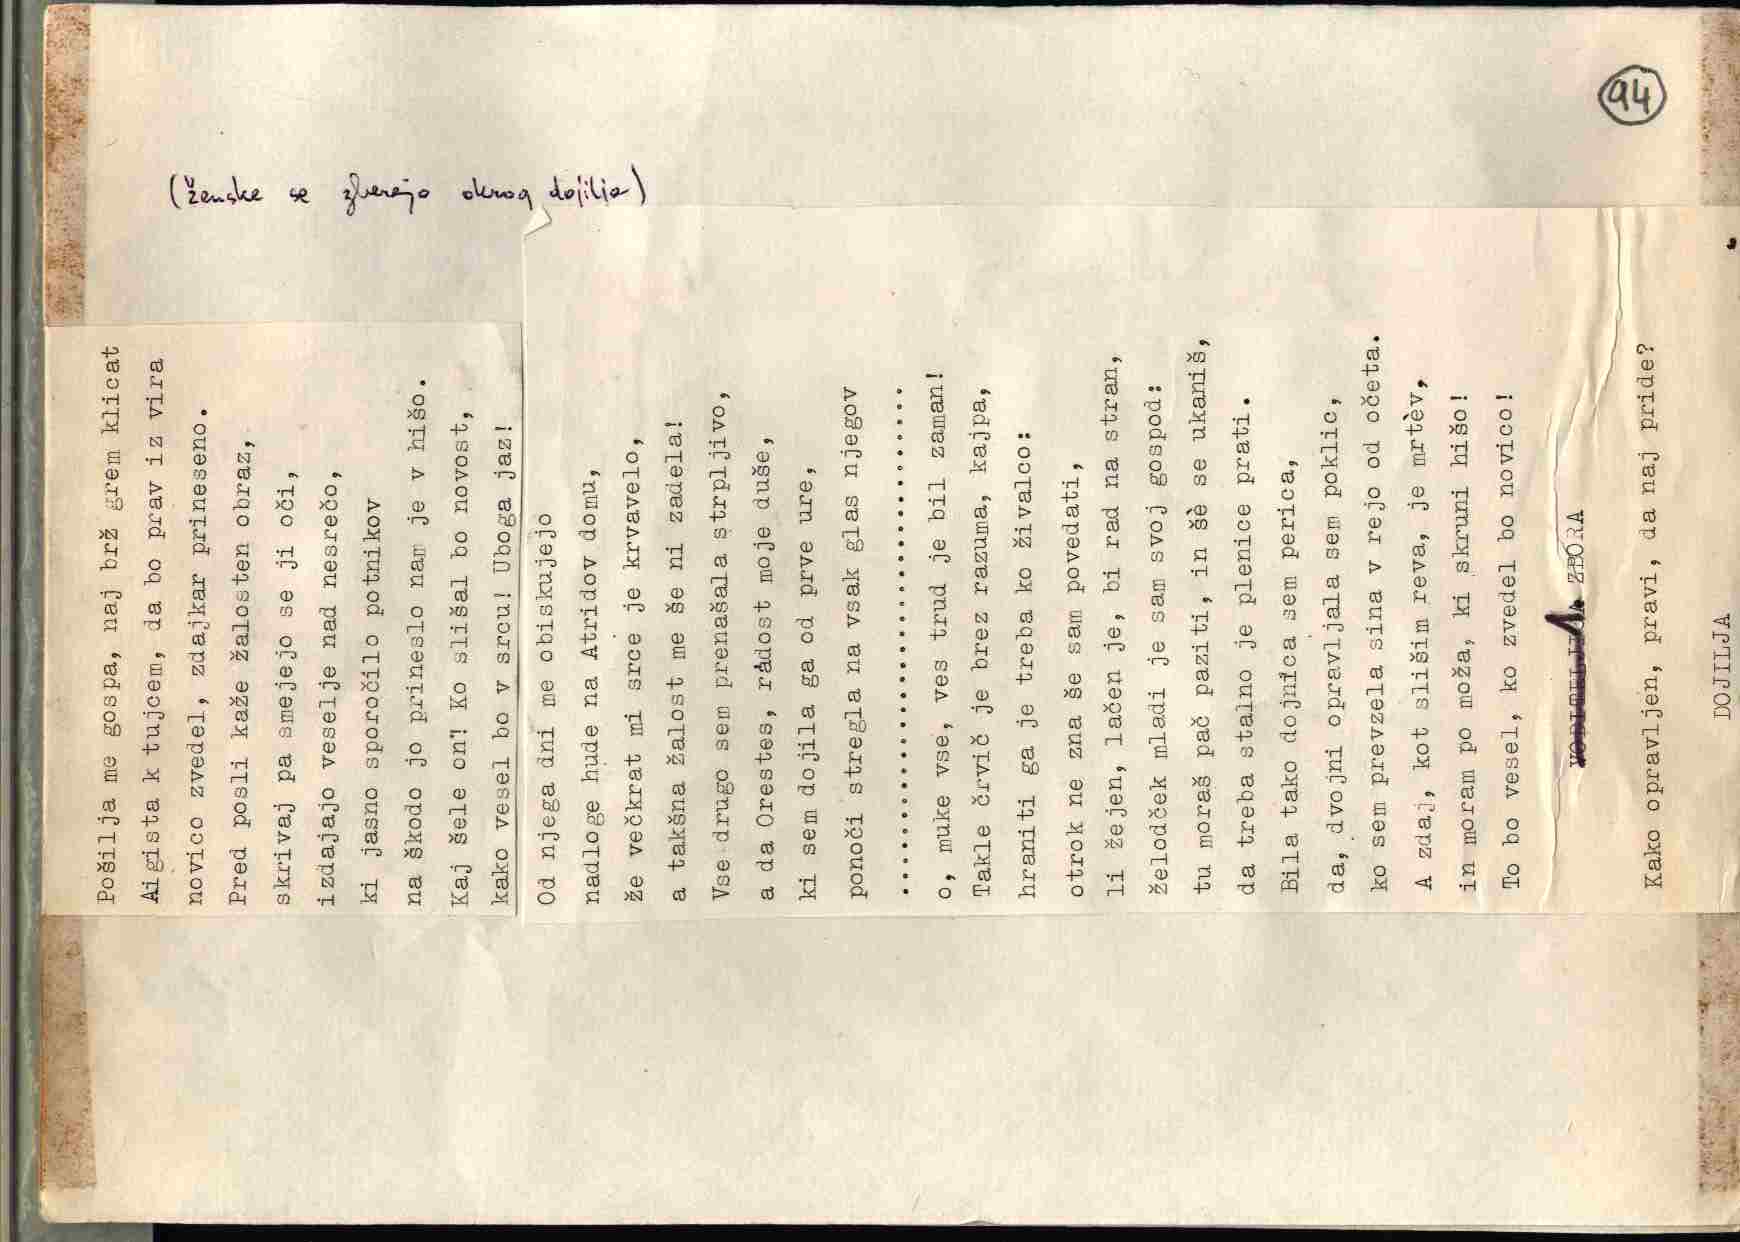 94
(ženske se zberejo okrog dojilje)
Pošilja me gospa, naj brž grem klicat
Aigista k tujcem, da bo prav iz vira
novico zvedel, zdajkar prineseno.
Pred posli kaže žalosten obraz,
skrivaj pa smejejo se ji oči,
izdajajo veselje nad nesrečo,
ki jasno sporočilo potnikov
na škodo jo prineslo nam je v hišo.
Kaj šele on! Ko slišal bo novost,
kako vesel bo v srcu! Uboga jaz!
Od njega dni me obiskujejo
nadloge hude na Atridov domu,
že večkrat mi srce je krvavelo,
a takšna žalost me še ni zadela!
Vse drugo sem prenašala strpljivo,
a da Orestes, radost moje duše,
ki sem dojila ga od prve ure,
ponoči stregla na vsak glas njegov
........................................
o, muke vse, ves trud je bil zaman!
Takle črvič je brez razuma, kajpa,
hraniti ga je treba ko živalco:
otrok ne zna še sam povedati,
li žejen, lačen je, bi rad na stran,
želodček mladi je sam svoj gospod:
tu moraš pač paziti, in šè se ukaniš,
da treba stalno je plenice prati.
Bila tako dojnica sem perica,
da, dvojni opravljala sem poklic,
ko sem prevzela sina v rejo od očeta.
A zdaj, kot slišim reva, je mrtèv,
in moram po moža, ki skruni hišo!
To bo vesel, ko zvedel bo novico!
VODITELJICA ZBORA
Kako opravljen, pravi, da naj pride?
DOJILJA